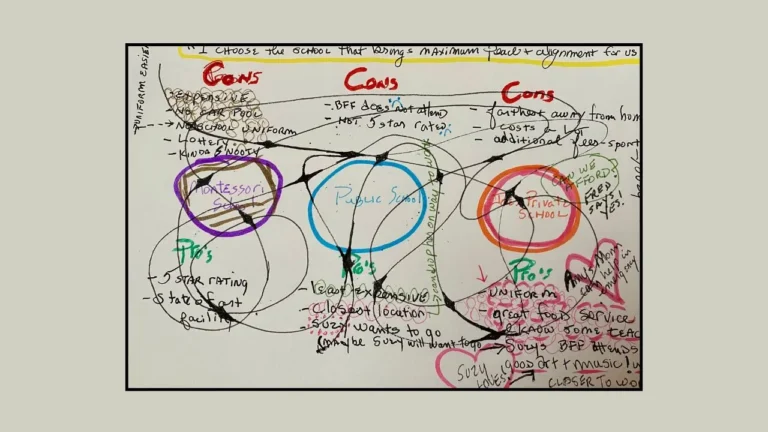 "I CHOOSE the SCHOOL that brings MAXIMUM Peace + alignment for us
UNIFORM EASIER
Cons
EXPENSIVE
NO CAR POOL
- NO SCHOOL UNIFORM
- Lottery
- KINDA SNOOTY
Montessori
School
Pro's
- 5 STAR RATING
- State of art
facility
Cons
- BFF does not attend
- NOT 5 star rated
Public School
Pro's
- Least EXPENSIVE
- Closest location
- Suzy wants to go
(maybe Suzy will want to go
drop her on way to work
Cons
- farthest away from hom
- costs a lot
- additional fees-sport
Private
SCHOOL
CAN WE
AFFORD?
FRED
SAYS!
YES.
Pro's
- UNIFORM
- great food service
KNOW SOME TEAC
- Suzys BFF attends
good art + music!
CLOSER TO WO
Amy's Mom
can help in
emergency
SUZY
LOVES